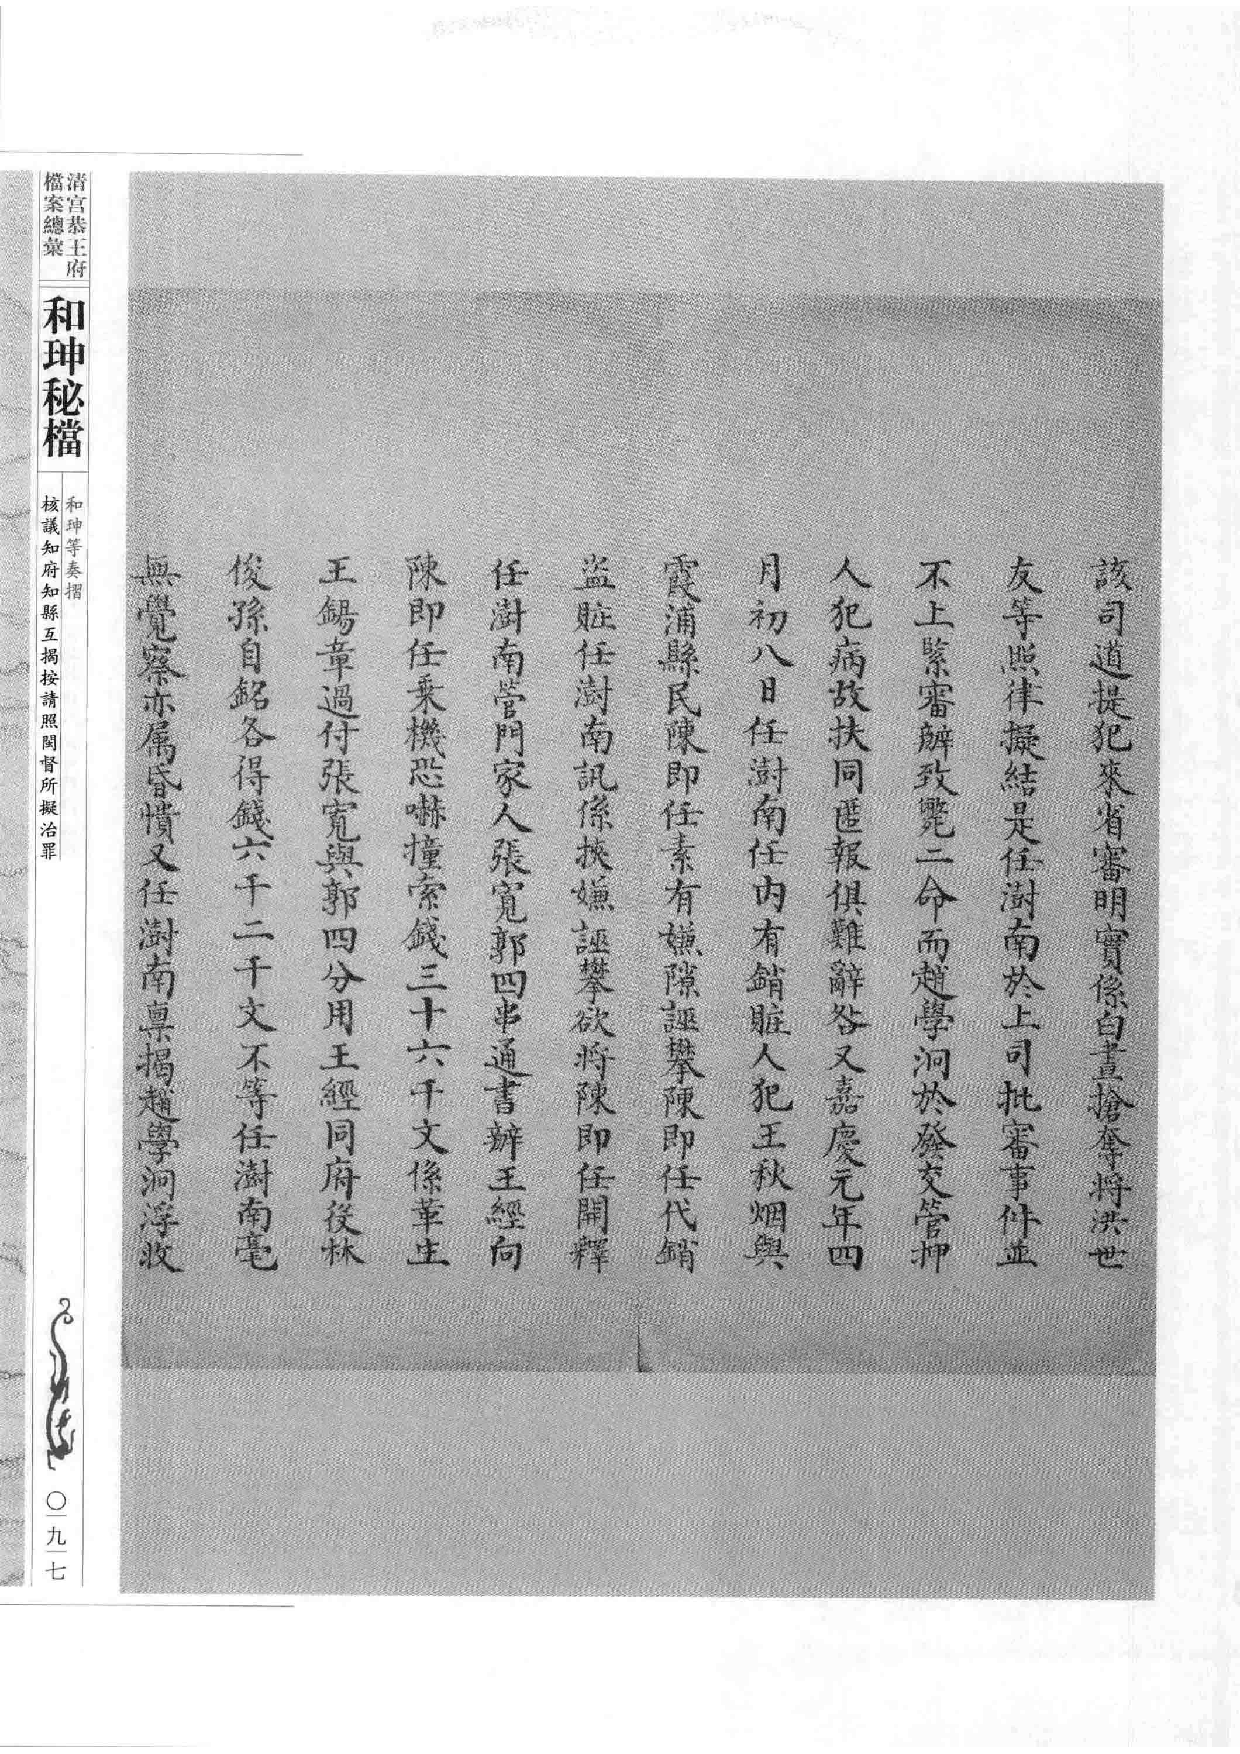 該司道提犯來省審明實係白晝搶奪將洪世
友等照律擬結是任澍南於上司批審事件並
不上緊審辦致斃二命而趙學泂於發交管押
人犯病故扶同匿報俱難辭咎又嘉慶元年四
月初八日任澍南任內有銷賍人犯王秋烟與
霞浦縣民陳即任素有嫌隙誣攀陳即任代銷
盜賍任澍南訊係挾嫌誣攀欲將陳即任開釋
任澍南管門家人張寬郭四串通書辦王經向
陳即任乘機恐嚇撞索錢三十六千文係革生
王錫章過付張寬與郭四分用王經同府役林
俊孫自銘各得錢六千二千文不等任澍南毫
無覺察亦属昏憒又任澍南稟揭趙學泂浮收
清宮恭王府
檔案總彙
和珅秘檔
和珅等奏摺
核議知府知縣互揭按請照閩督所擬治罪
〇九七